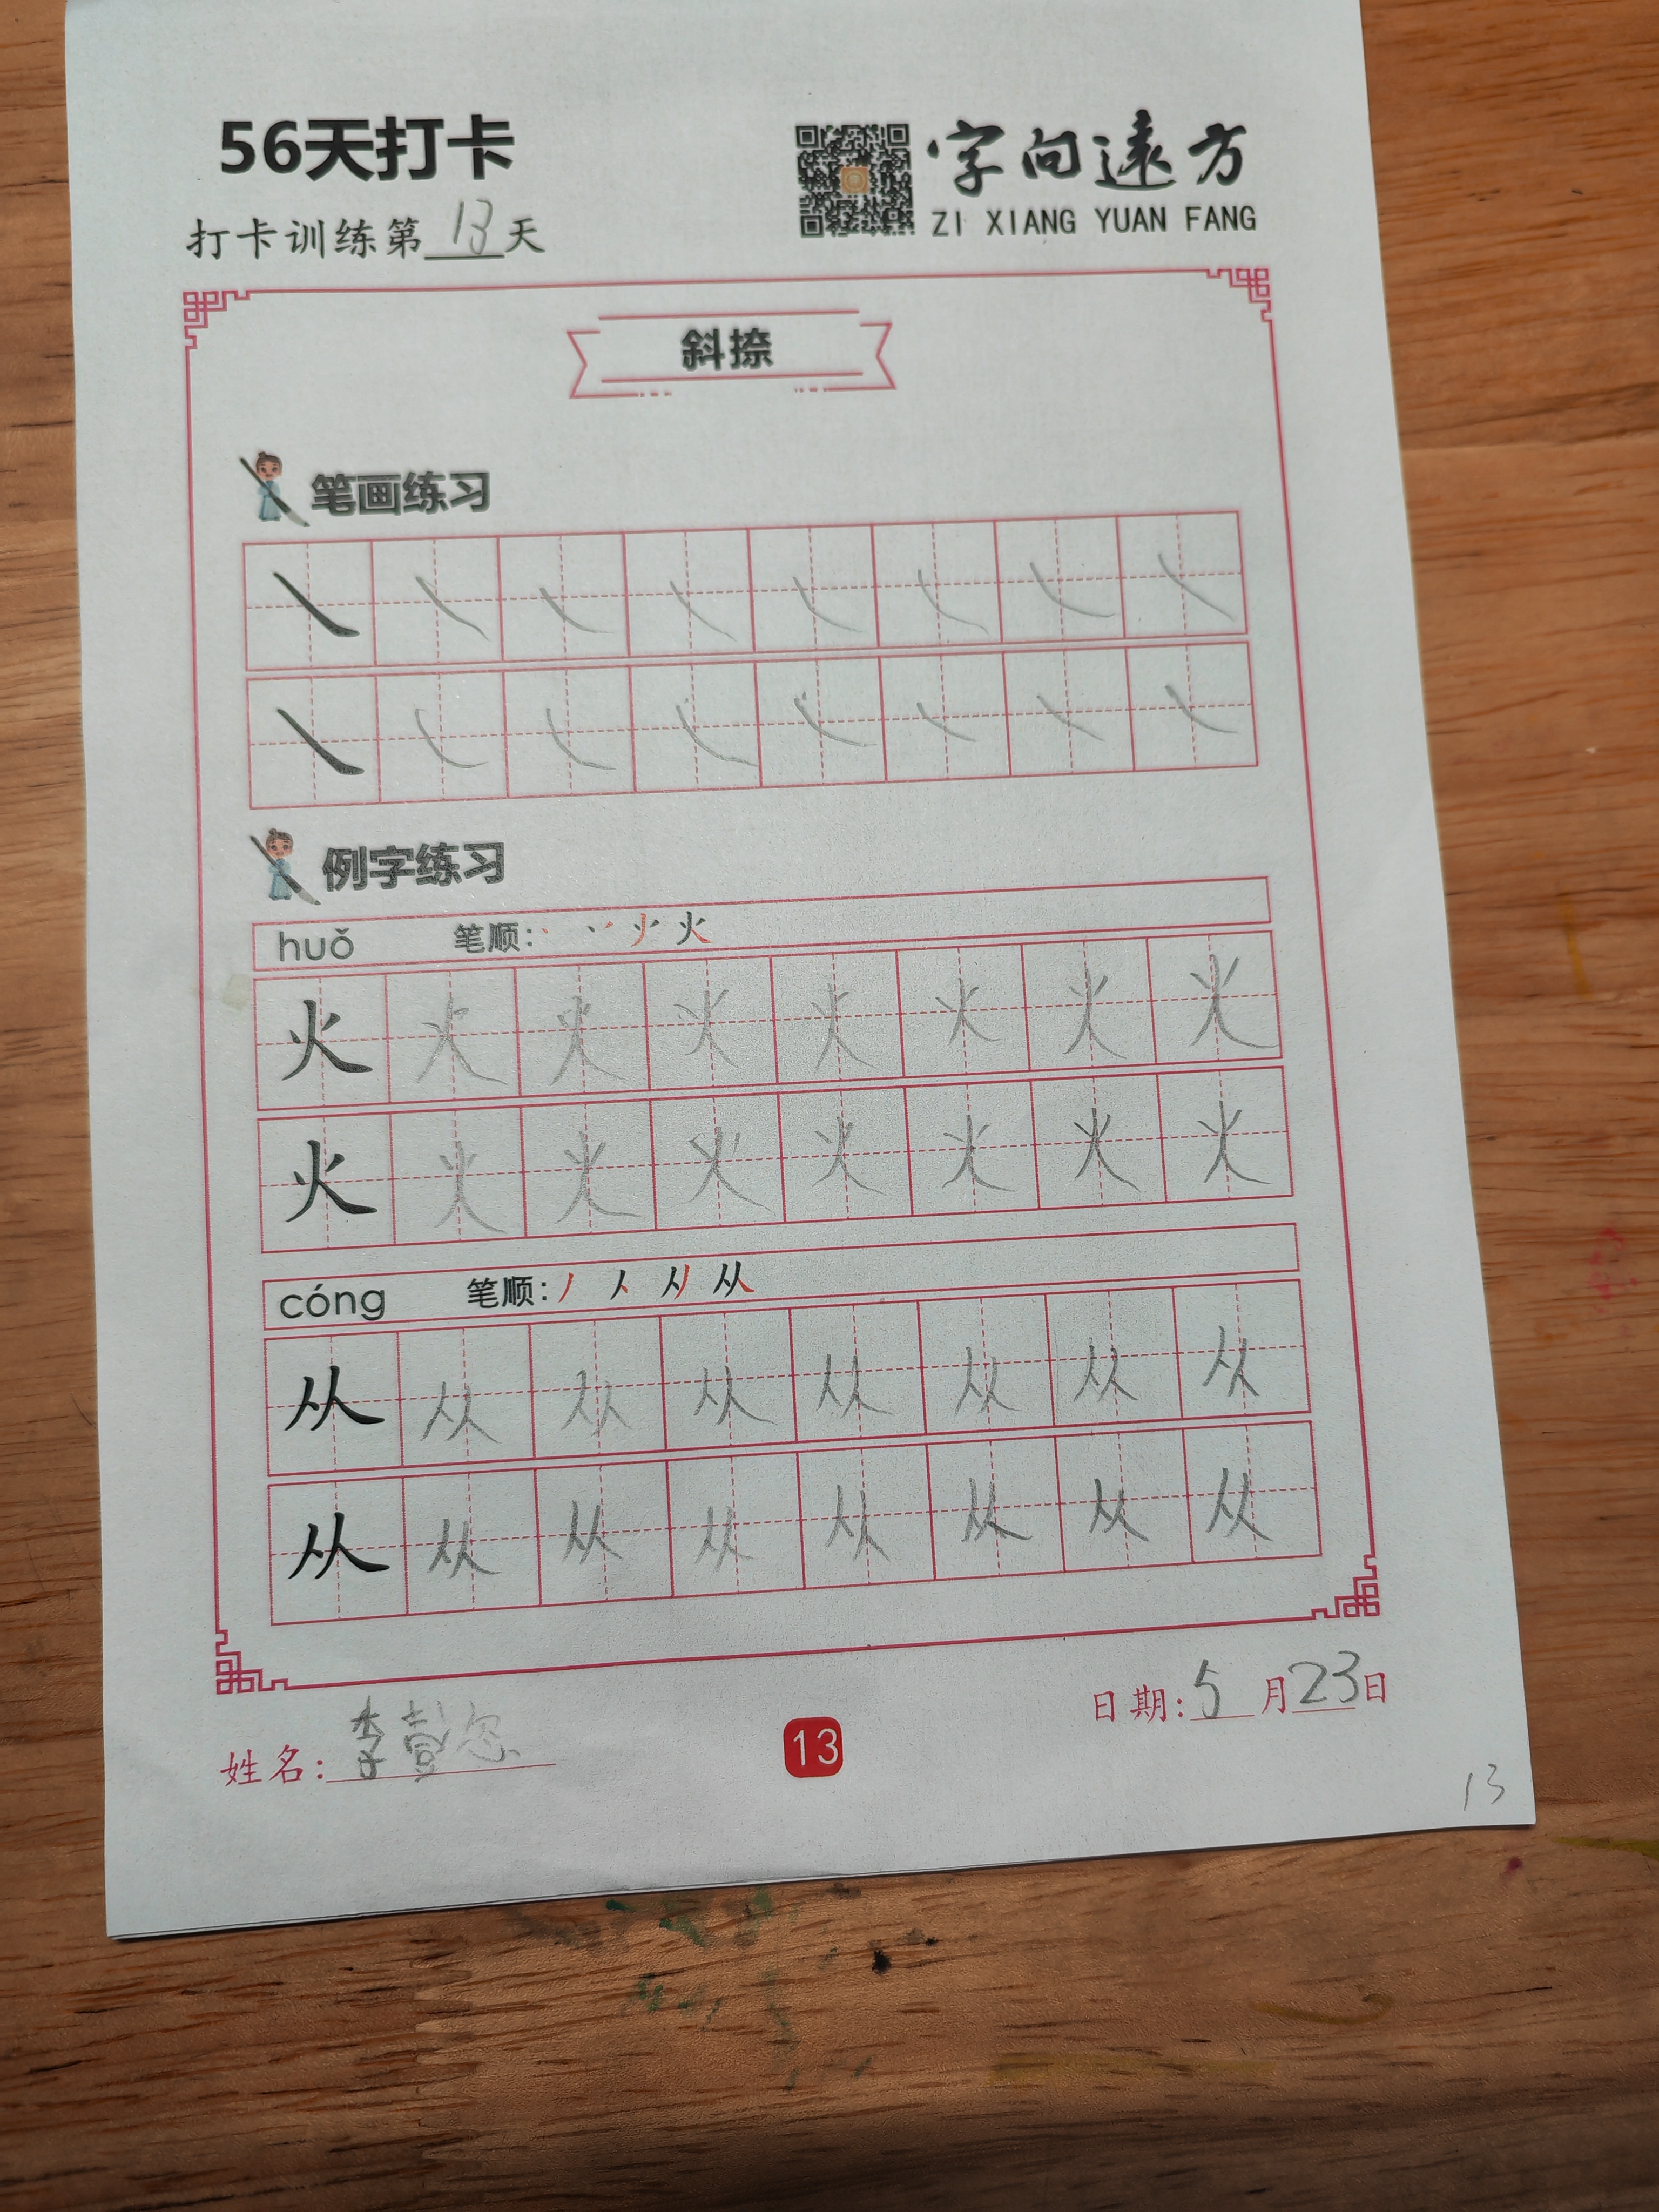 56天打卡
字向遠方
ZI XIANG YUAN FANG
打卡训练第13天
斜捺
笔画练习
㇏ ㇏ ㇏ ㇏ ㇏ ㇏ ㇏ ㇏
㇏ ㇏ ㇏ ㇏ ㇏ ㇏ ㇏ ㇏
例字练习
huǒ 笔顺: 火
火 火 火 火 火 火 火 火
火 火 火 火 火 火 火 火
cóng 笔顺: 丿 人 从
从 从 从 从 从 从 从 从
从 从 从 从 从 从 从 从
日期:5月23日
姓名:李
13
13